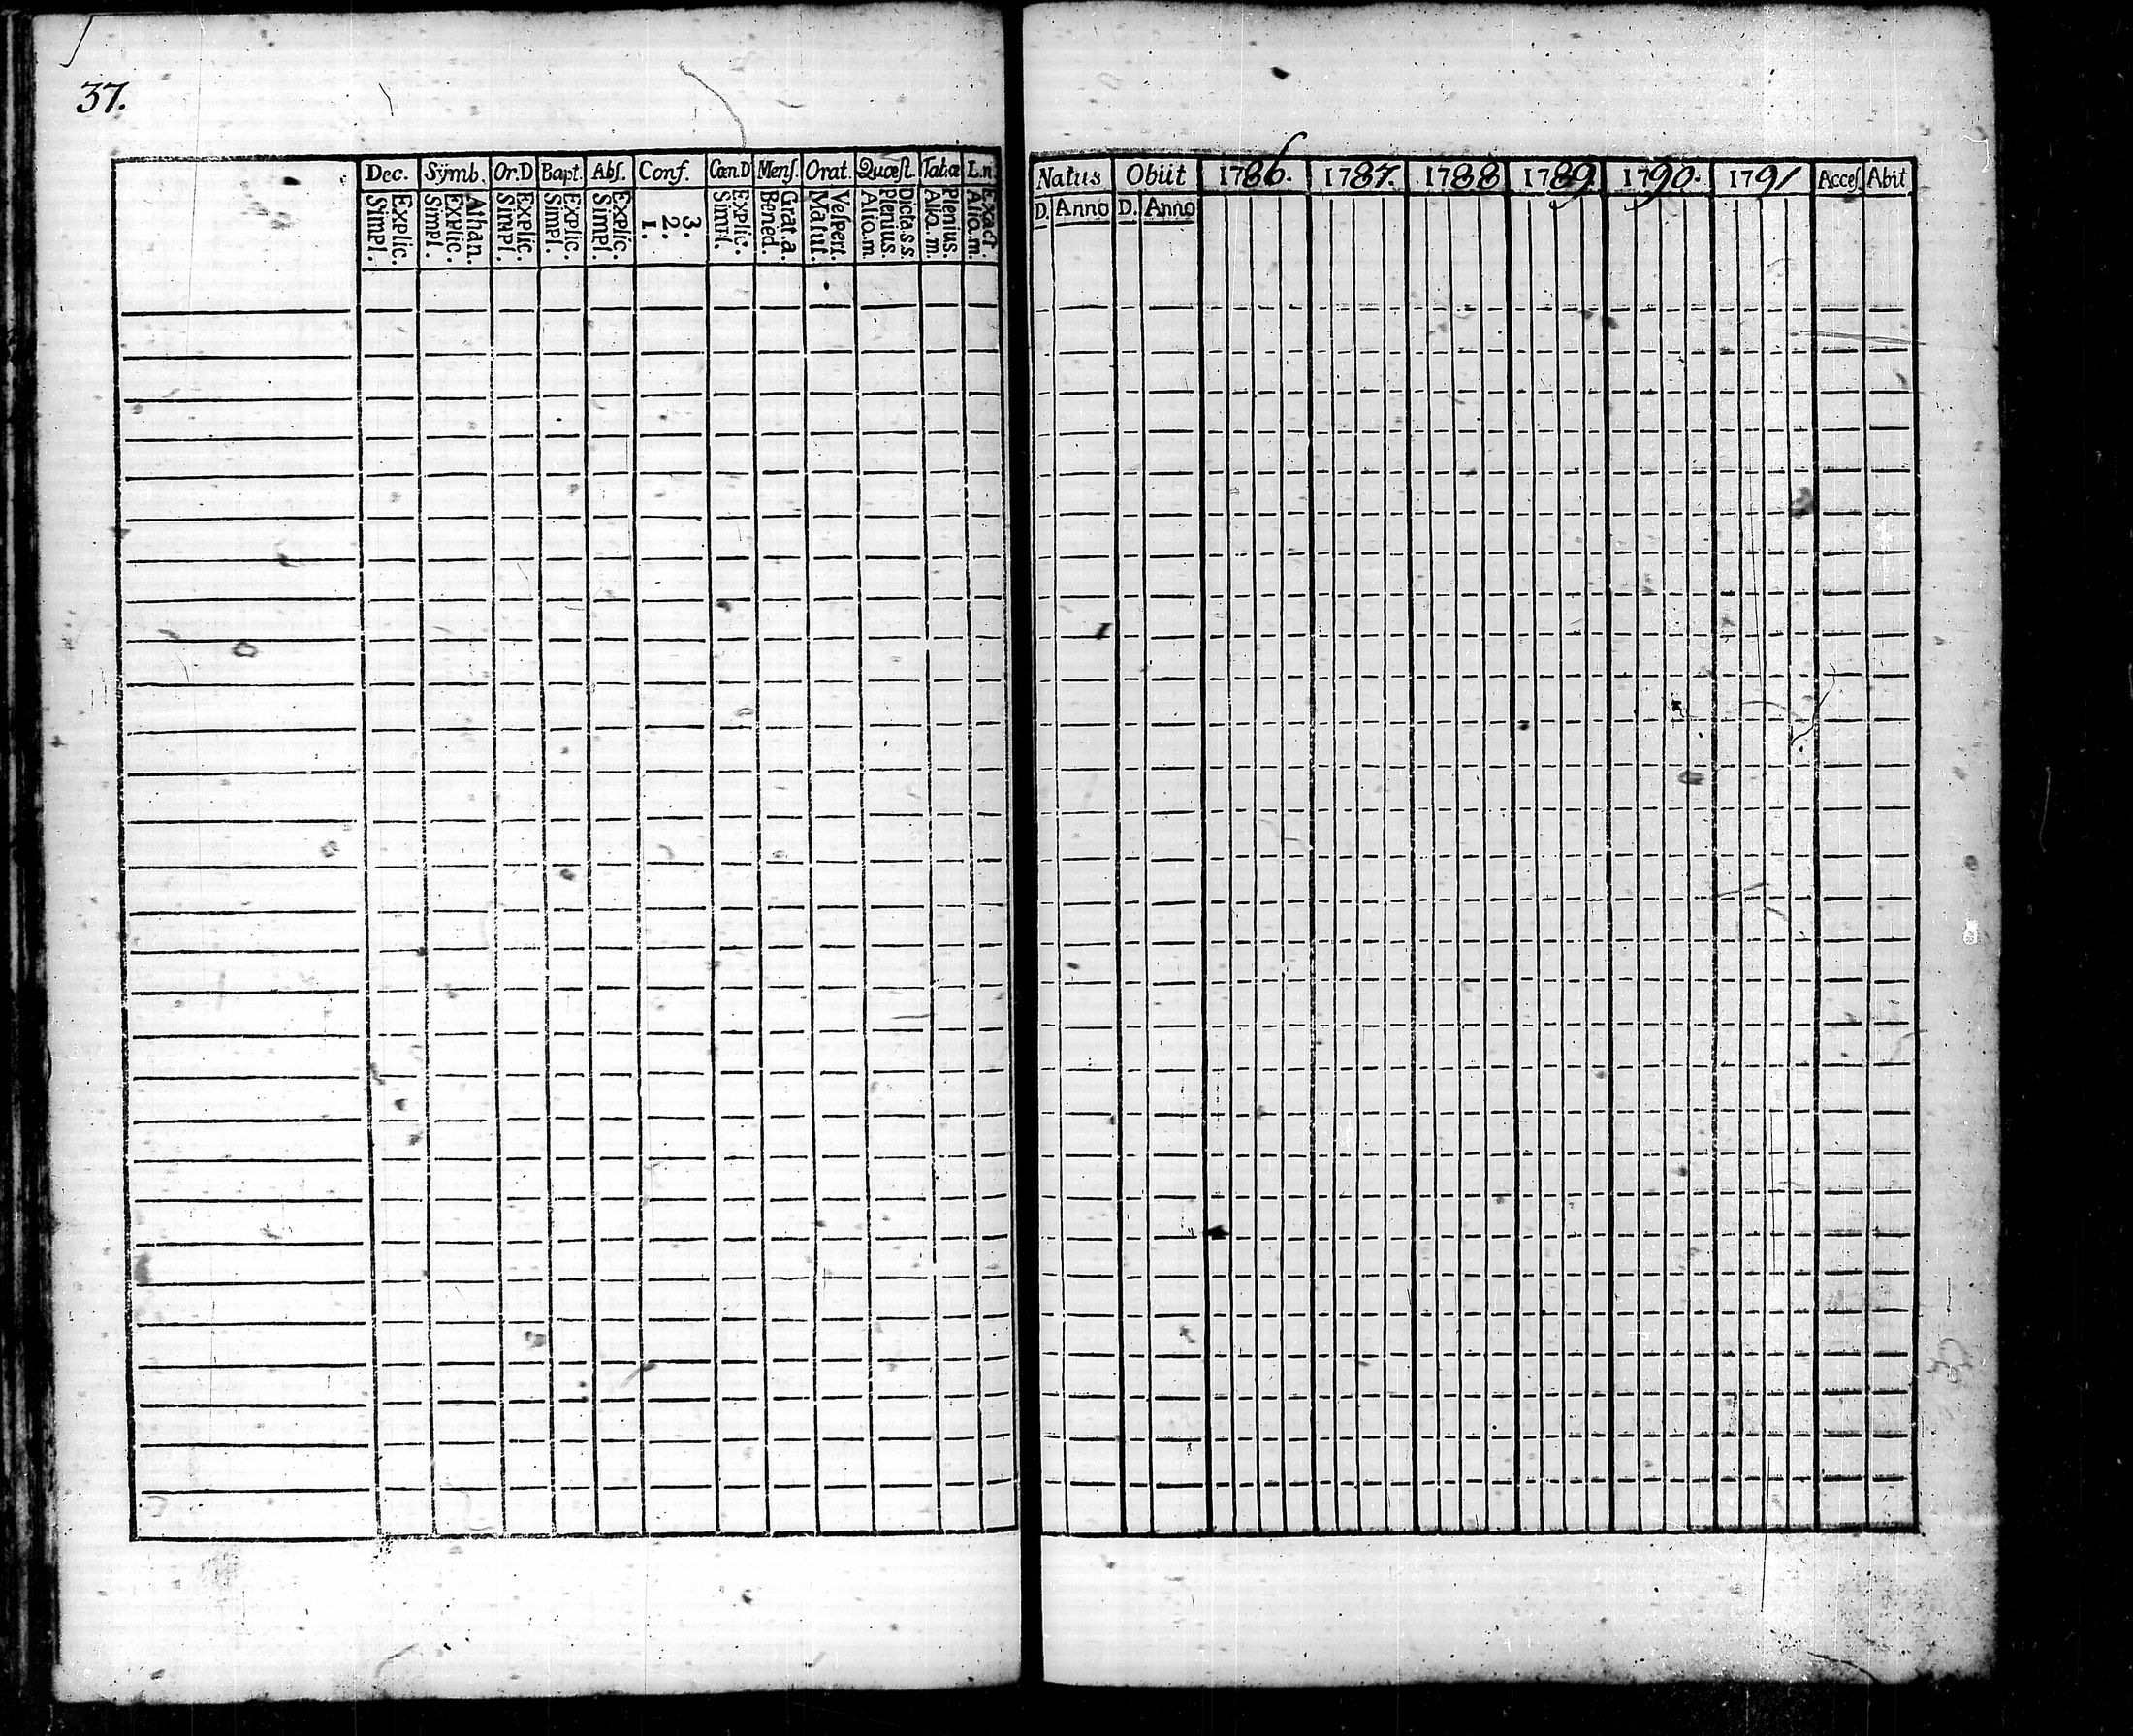 37.
Dec. Sÿmb. Or.D Bapt. Abſ. Conf. Cœn.D Menſ. Orat. Quœſt. Tab.œ L.n.
Explic. Simpl. Athan. Explic. Simpl. Explic. Simpl. Explic. Simpl. Explic. Simpl. 3. 2. 1. Explic. Simpl. Grat. a. Bened. Veſpert. Matut. Dicta.s s. Plenius. Aliq. m Plenius. Aliq. m. Exact Aliq. m.
Natus Obiit 1786. 1787. 1788 1789. 1790. 1791 Acceſ Abit
D. Anno D. Anno